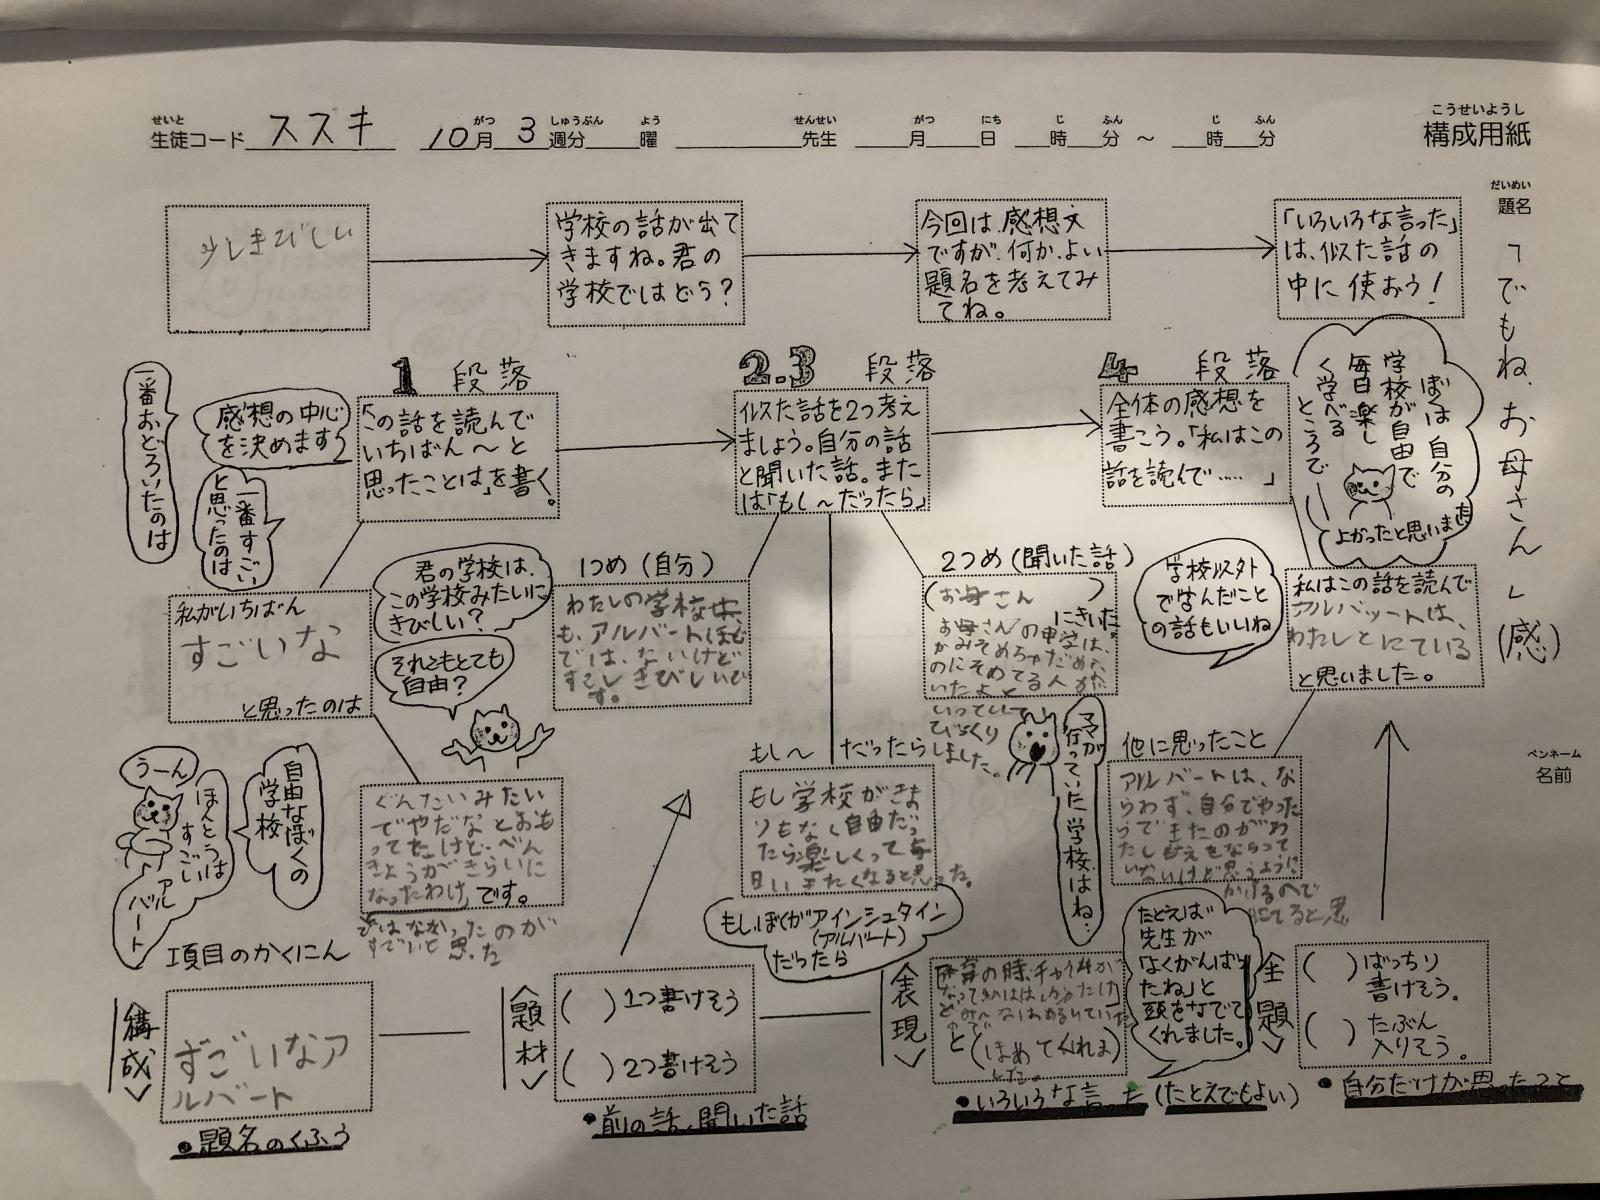 せいと
生徒コード スズキ
がつ しゅうぶん よう
10月 3週分 曜
せんせい
先生
がつ にち じ ふん じ ふん
月 日 時 分 〜 時 分
こうせいようし
構成用紙
だいめい
題名
「でもね、お母さん」(感)
ペンネーム
名前
少しきびしい
学校の話が出て
きますね。君の
学校ではどう?
今回は、感想文
ですが、何か、よい
題名を考えてみ
てね。
「いろいろな言った」
は、似た話の
中に使おう!
1 段落
「この話を読んで
いちばん〜と
思ったことは」を書く。
感想の中心
を決めます
一番おどろいたのは
一番すごい
と思ったのは
2.3 段落
似た話を2つ考え
ましょう。自分の話
と聞いた話。また
は「もし〜だったら」
4 段落
全体の感想を
書こう。「私はこの
話を読んで……」
ぼくは自分の
学校が自由で
毎日楽し
く学べる
ところで
よかったと思いました
私がいちばん
すごいな
と思ったのは
君の学校は、
この学校みたいに
きびしい?
それともとても
自由?
1つめ(自分)
も、アルバートほど
では、ないけど
すこしきびしいで
す。
2つめ(聞いた話)
(お母さん)
にきいた。
いたよと
いっていて
びっくり
しました。
学校以外
で学んだこと
の話もいいね
私はこの話を読んで
わたしとにている
と思いました。
自由なぼくの
学校
うーん
ほんとうは
すごい
アルバート
ぐんたいみたい
でやだなとおも
ってたけど、べん
きょうがきらいに
なったわけ」です。
ではなかったのが
すごいと思った
もし〜だったら
もし学校がきま
りもなく自由だっ
たら楽しくって毎
日いきたくなると思った。
もしぼくがアインシュタイン
(アルバート)
だったら
ママが
行っていた学校はね…
他に思ったこと
アルバートは、な
らわず、自分でやった
かけるので
にてると思
項目のかくにん
<構成>
すごいなア
ルバート
●題名のくふう
<題材>
( )1つ書けそう
( )2つ書けそう
●前の話、聞いた話
<表現>
と(ほめてくれま
した。
●いろいろな言った(たとえでもよい)
たとえば
先生が
「よくがんばっ
たね」と
頭をなでて
くれました。
<主題>
( )ばっちり
書けそう。
( )たぶん
入りそう。
●自分だけが思ったこと